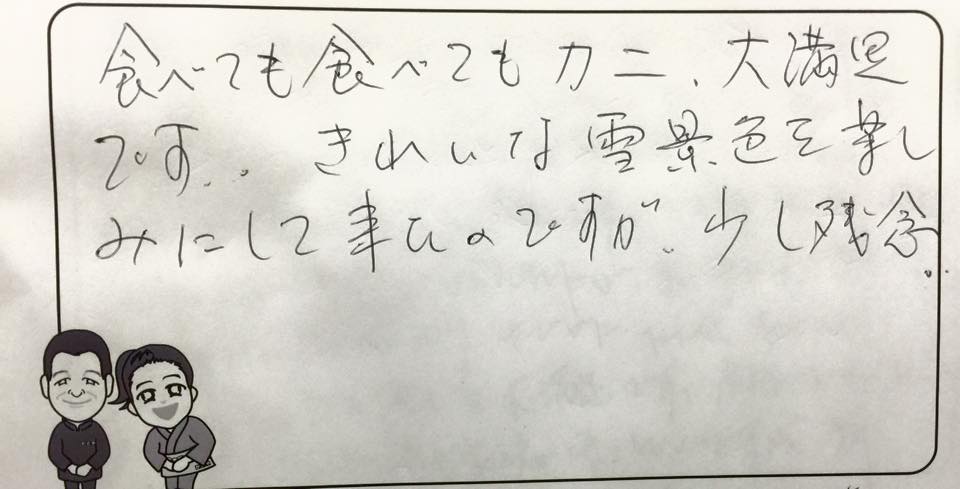 食べても食べてもカニ、大満足
です。. きれいな雪景色を楽し
みにして来たのですが、少し残念。